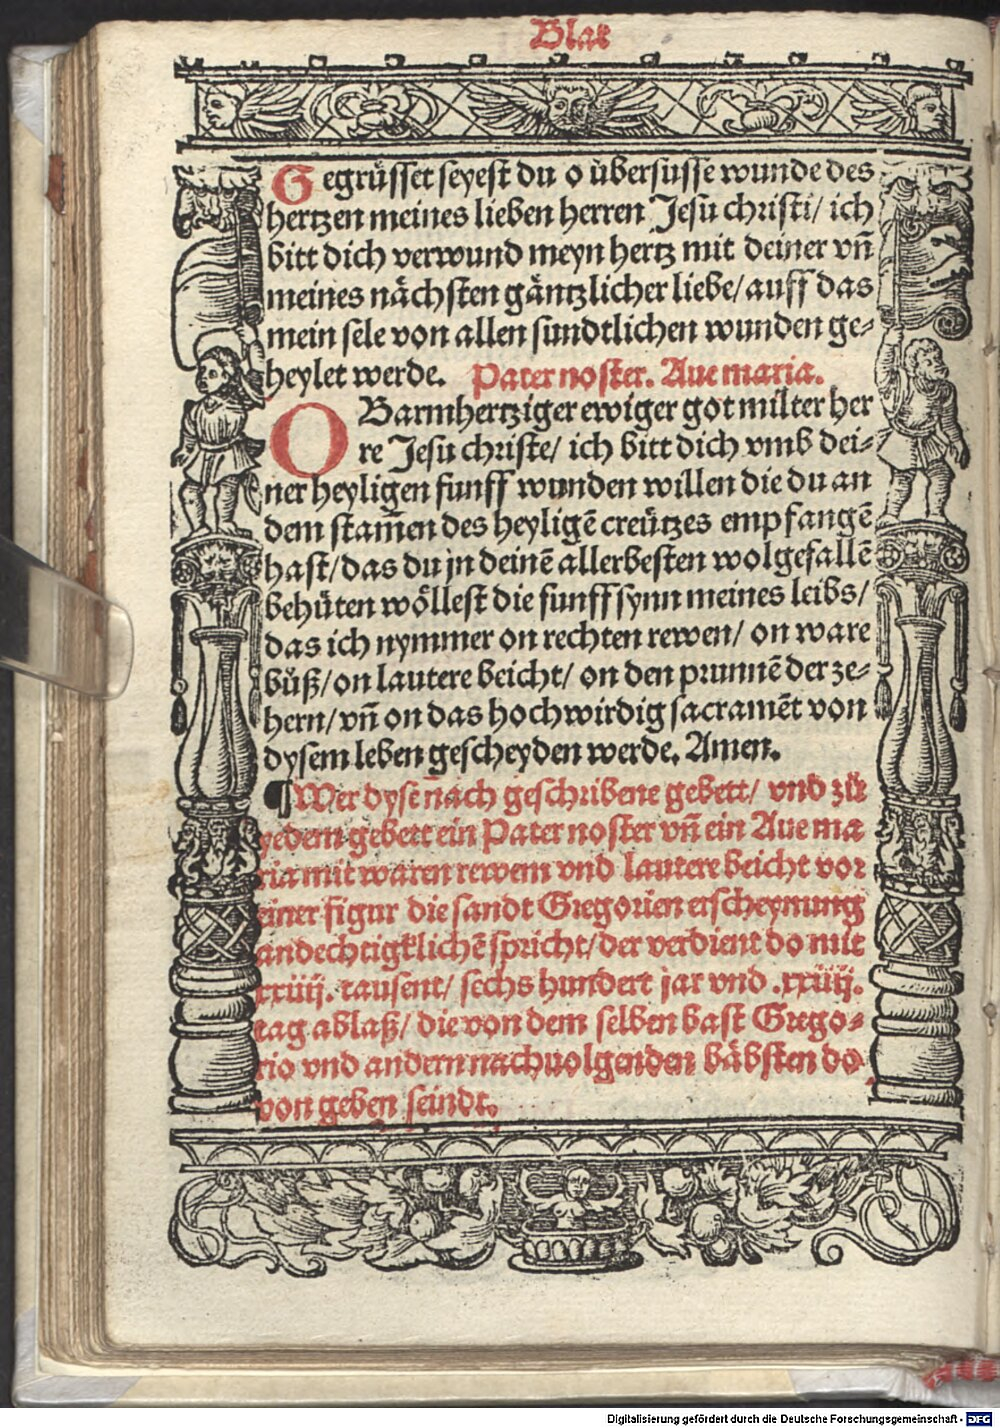 Blat
Gegrüsset seyest du o übersusse wunde des
hertzen meines lieben herren Jesu christi/ ich
bitt dich verwund meyn hertz mit deiner vn̄
meines nächsten gäntzlicher liebe/ auff das
mein sele von allen sundtlichen wunden ge⸗
heylet werde. Pater noster. Aue maria.
O Barmhertziger ewiger got milter her
re Jesu christe/ ich bitt dich vmb dei⸗
ner heyligen funff wunden willen die du an
dem stam̄en des heyligē creützes empfangē
hast/ das du jn deinē allerbesten wolgefallē
behüten wöllest die funff synn meines leibs/
das ich nymmer on rechten rewen/ on ware
bůß/ on lautere beicht/ on den prunnē der ze⸗
hern/ vn̄ on das hochwirdig sacramēt von
dysem leben gescheyden werde. Amen.
¶ Wer dyse nach geschribene gebett/ vnd zů
yedem gebett ein Pater noster vn̄ ein Aue ma
ria mit waren rewem vnd lautere beicht vor
einer figur die sandt Gregorien erscheynung
andechtigklichē spricht/ der verdient do mit
xxiiij. tausent/ sechs hundert jar vnd .xxiiij.
tag ablaß/ die von dem selben bast Grego⸗
rio vnd andern nachuolgenden bäbsten do
von geben seindt.
Digitalisierung gefördert durch die Deutsche Forschungsgemeinschaft - DFG